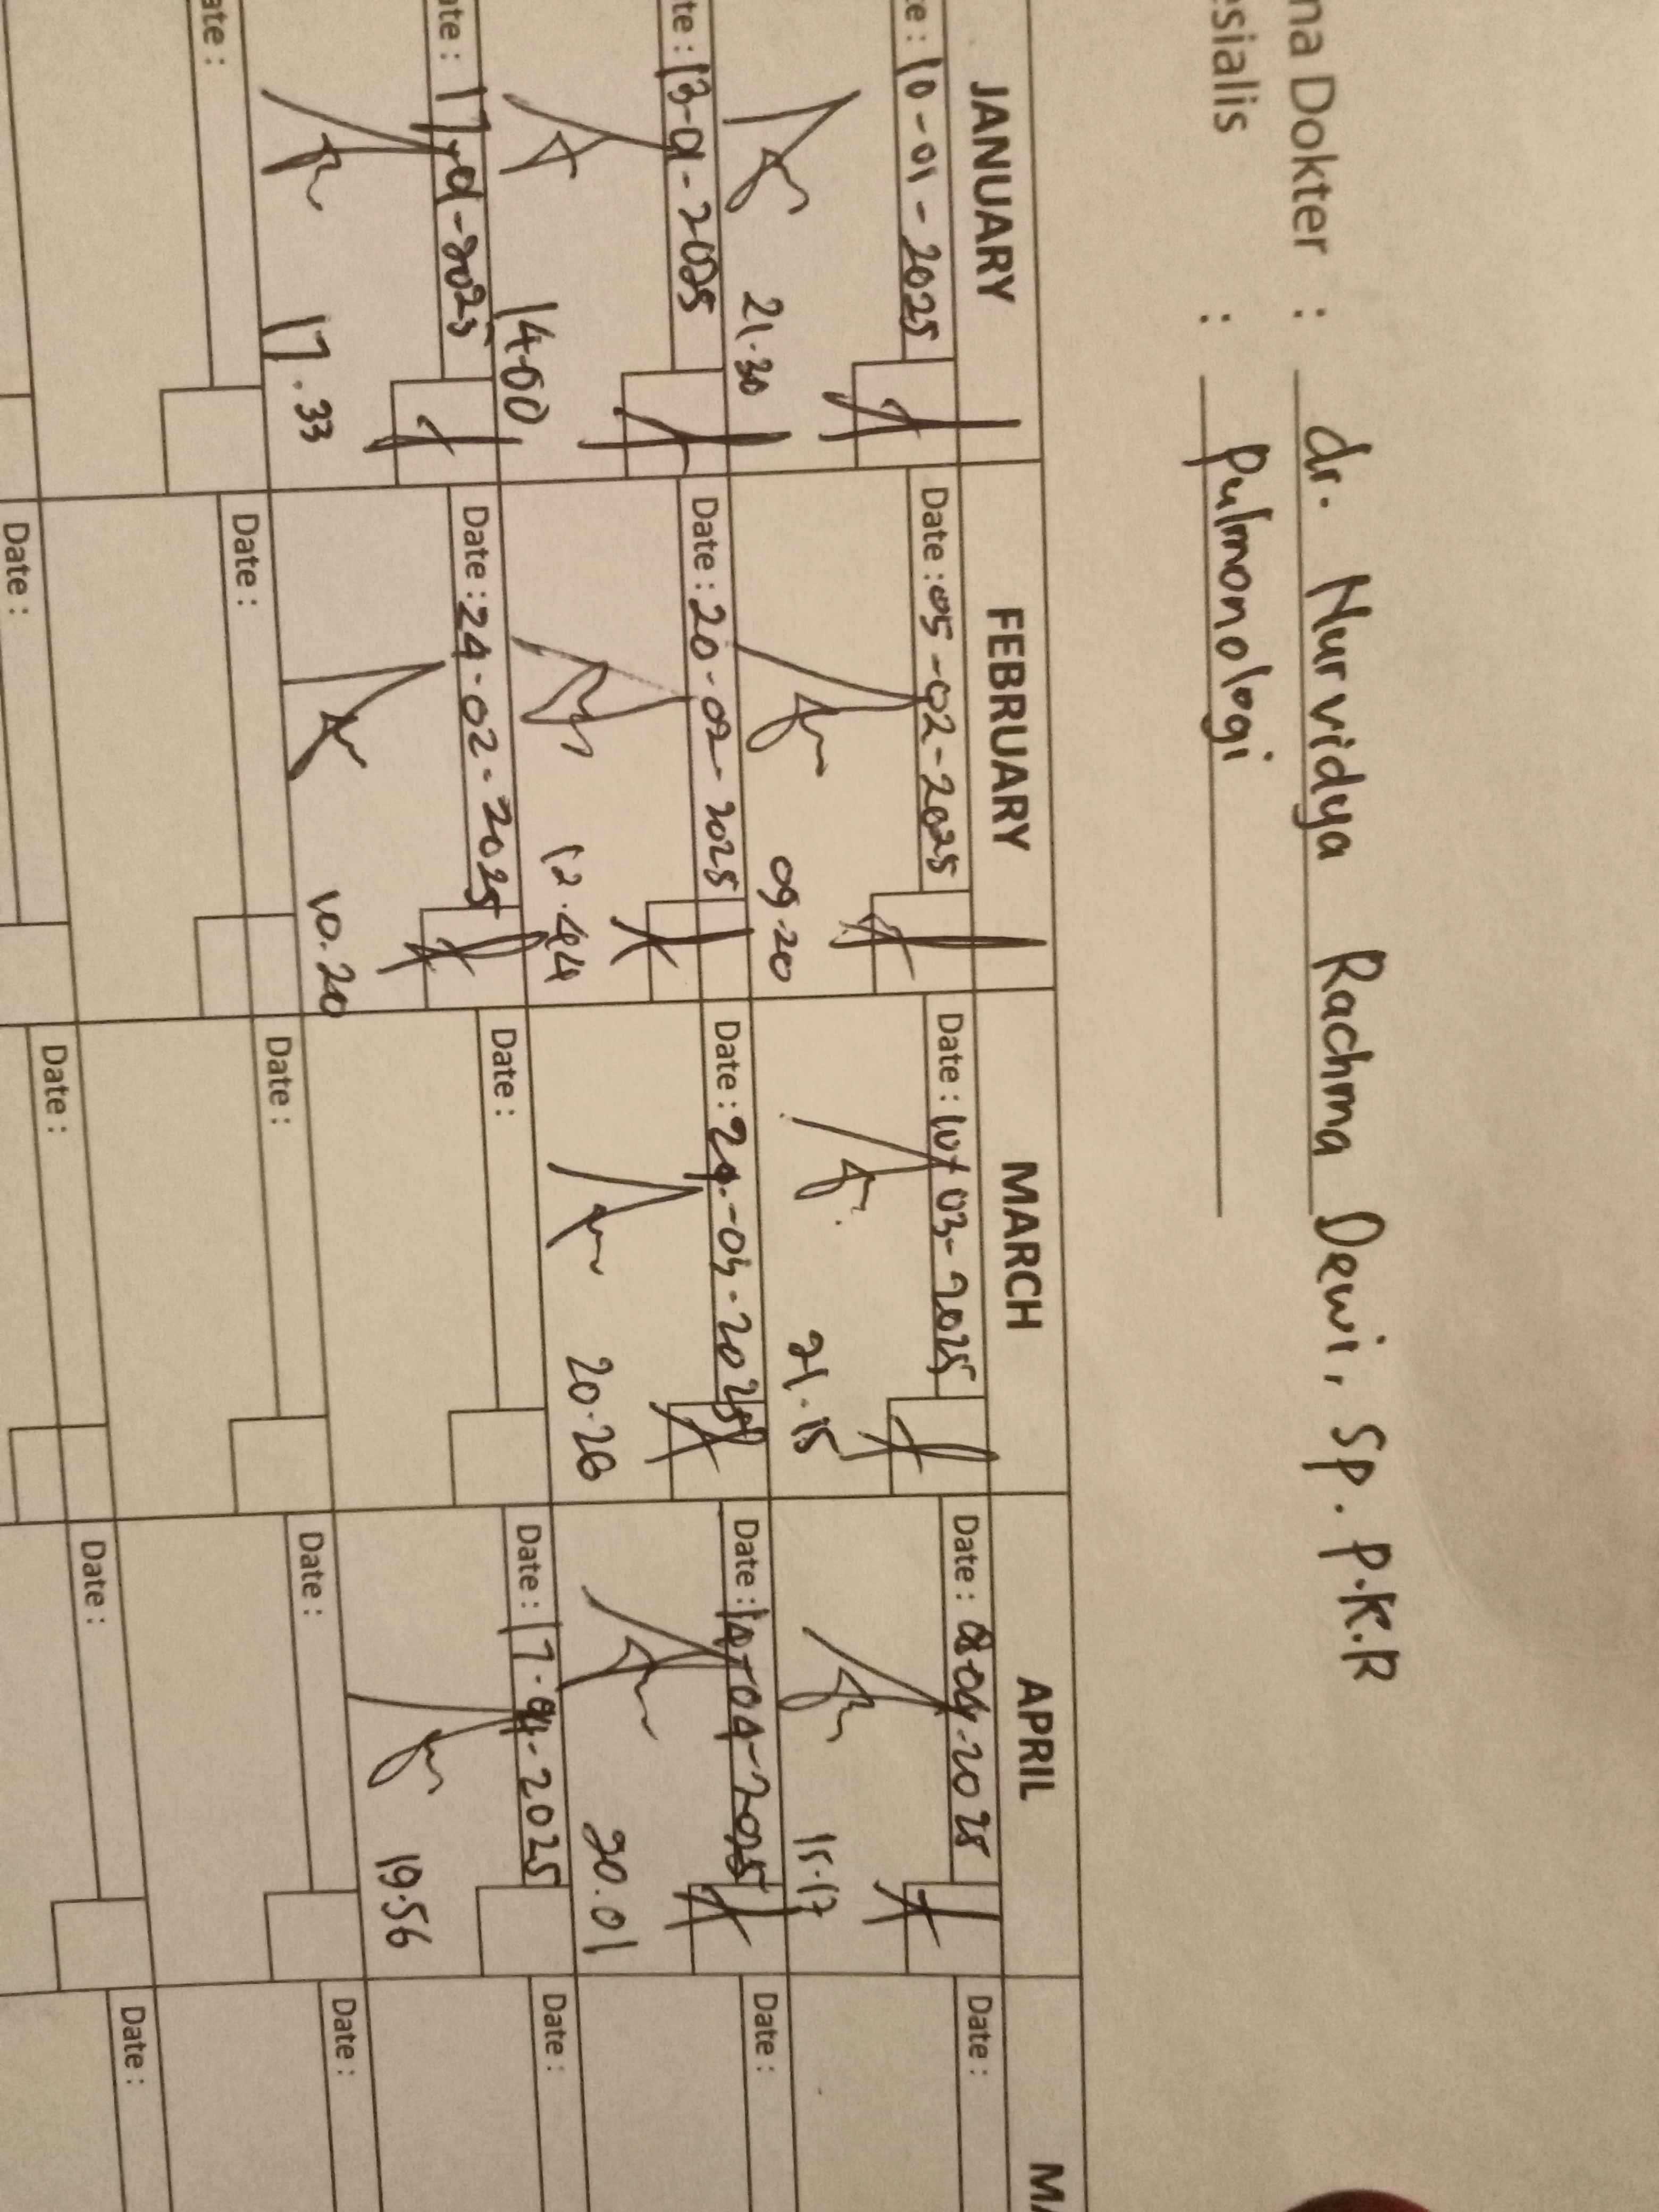 na Dokter : dr. Nurvidya Rachma Dewi, Sp. P.K.R
esialis : Pulmonologi
JANUARY FEBRUARY MARCH APRIL MA
e : 10-01-2025 Date : 05-02-2025 Date : 10-03-2025 Date : 08-04-2025 Date :
21.30 09.20 21.15 15.17
te : 13-01-2025 Date : 20-02-2025 Date : 24-03-2025 Date : 04-2025 Date :
14.00 12.44 20.26 20.01
ate : 17-01-2025 Date : 24-02-2025 Date : Date : 17-04-2025 Date :
17.33 10.20 19.56
ate : Date : Date : Date : Date :
Date : Date : Date : Date :